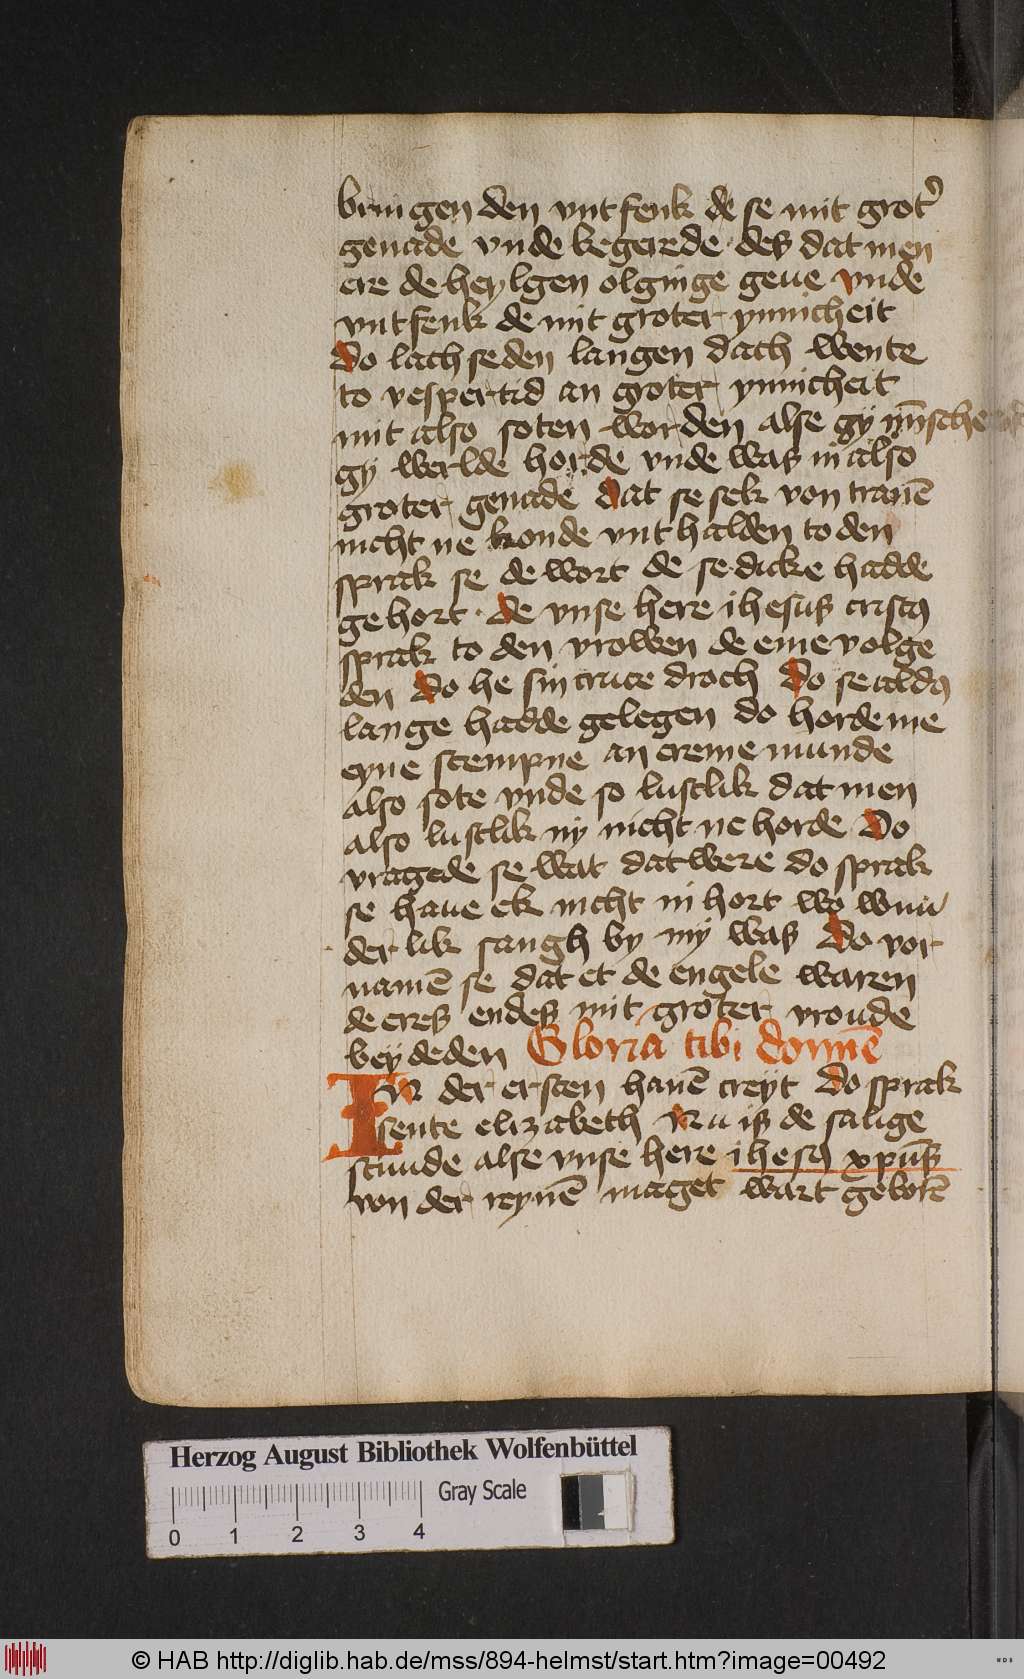 bringen den vntfenk de se mit grot᷑
genade vnde begerede des dat men
ere de heylgen olginge geue vnde
vntfenk de mit groter ynnicheit
do lach se den langen dach wente
to vespertid an groter ynnicheit
mit also soten worden alse gÿ
gÿ werlde horde vnde was in also
groter genade dat se sek von tranē
nicht ne konde vnt halden to den
sprak se de wort de se dicke hadde
gehort · de vnse here ihesus cristꝰ
sprak to den vrowen de eme volge
den do he sin cruce droch do se aldꝰ
lange hadde gelegen do horde me
eyne stempne an creme munde
also sote vnde so lustlik dat men
also lustlik nÿ nicht ne horde Do
vragede se wat dat were do sprak
se haue ek nicht in hort wo wun
derlik sangh by mÿ was do vor
namē se dat et de engele waren
de eres endes mit groter vroude
beÿdeden Gloria tibi domīe
IN der ersten hanē creÿt do sprak
sente elizabeth Nu is de salige
stunde alse vnse here ihesꝰ xp̄us
von der reynē maget wart geborē
Herzog August Bibliothek Wolfenbüttel
Gray Scale
0 1 2 3 4
© HAB http://diglib.hab.de/mss/894-helmst/start.htm?image=00492